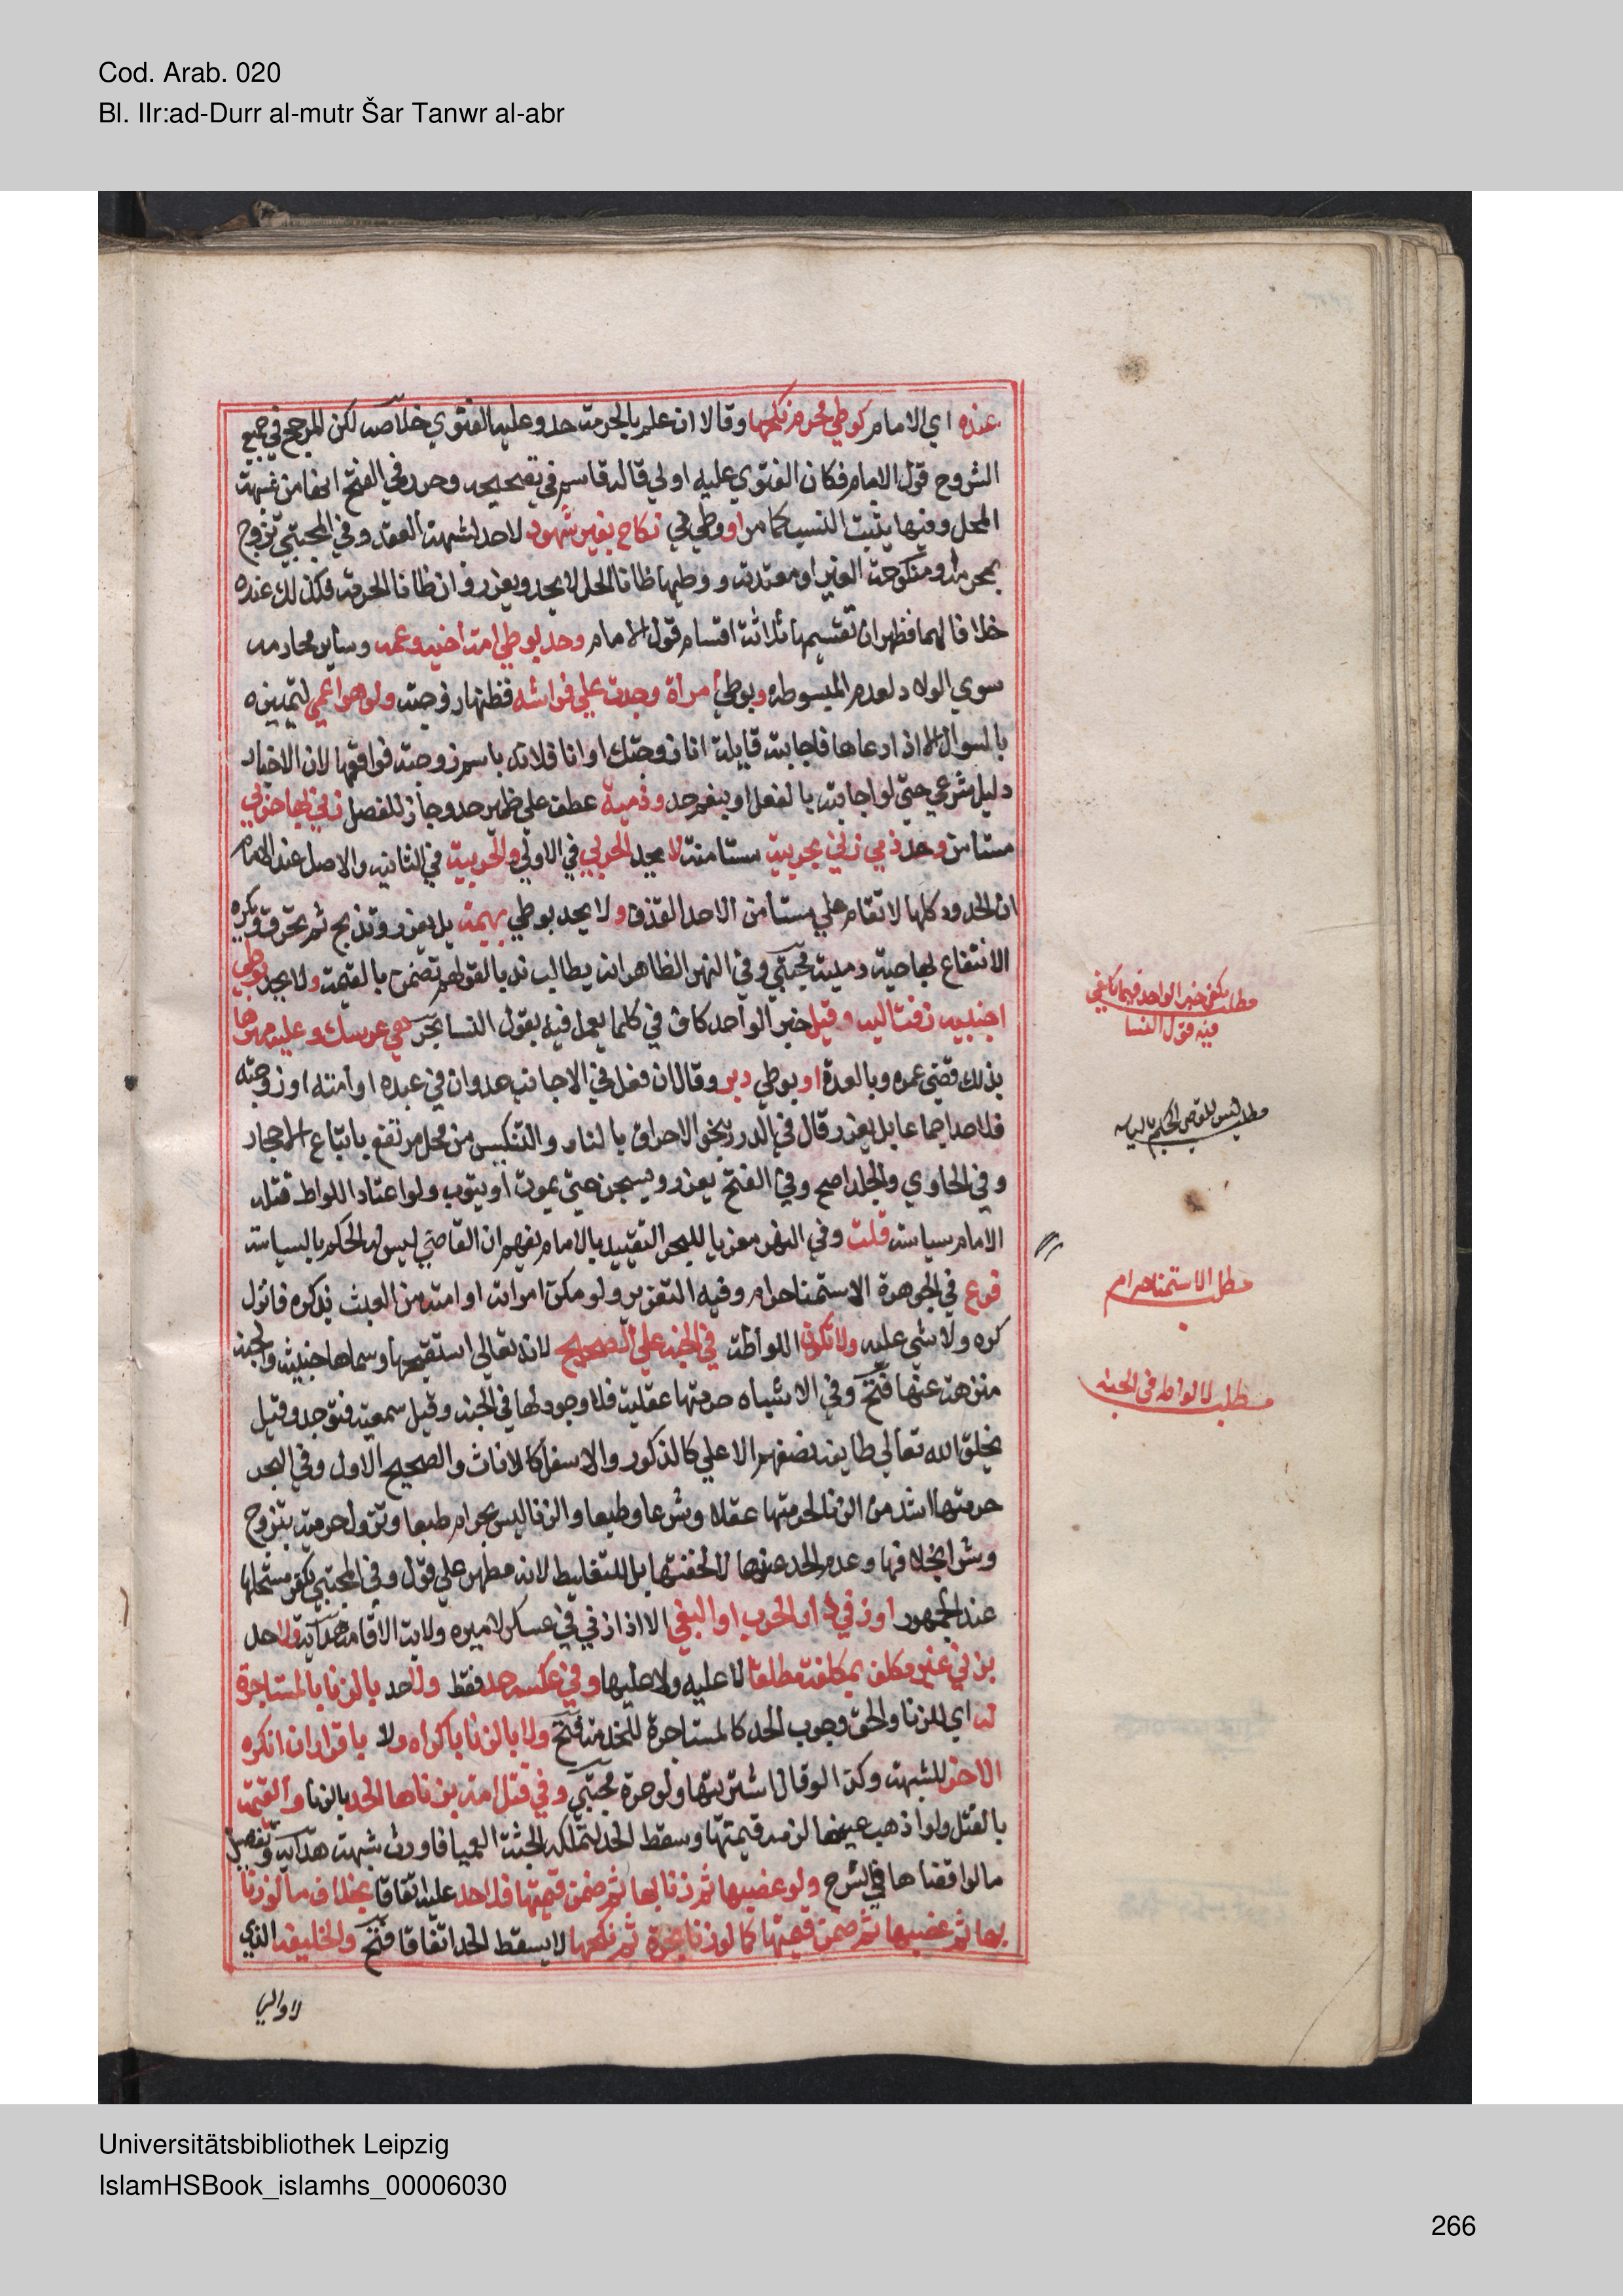 Cod. Arab. 020
Bl. IIr:ad-Durr al-mutr Šar Tanwr al-abr
عنده اي الامام كوطي محرم نكحها وقالا ان علم بالحرمة حد وعليه الفتوي خلاصه لكن المرجح في جميع
الشروح قول الامام فكان الفتوي عليه اولي قاله قاسم في تصحيحه وحرر في الفتح انها من شبهة
المحل وفيها يثبت النسب كما مر او وطي في نكاح بغير شهود لا حد لشبهة العقد وفي المجتبي تزوج
بمحرمه او منكوحة الغير او معتدته ووطيها ظانا الحل لا يحد ويعزر وان ظانا الحرمة فكذلك عنده
خلافا لهما فظهر ان تقسيمها ثلاثة اقسام قول الامام وحد بوطي امة اخيه وعمه وساير محارمه
سوي الولاد لعدم البسوطه وبوطي امرأة وجدت علي فراشه فظنها زوجته ولو هو اعمي لتمييزه
بالسوال الا اذا دعاها فاجابته قايلة انا زوجتك او انا فلانه باسم زوجته فواقعها لان الاخبار
دليل شرعي حتي لو اجابته بالفعل او بنعم حد وذمية عطف علي ظهير حد وجاز للفصل زني بها حربي
مستامن وحد ذمي زني بحربية مستامنة لا يحد الحربي في الاولي والحربية في الثانيه والاصل عند الامام
ان الحدود كلها لا تقام علي مستأمن الا حد القذف ولا يحد بوطي بهيمة بل يعزر وتذبح ثم تحرق ويكره
الانتفاع بها حية وميتة مجتبي وفي النهر الظاهر انه يطالب ندبا لقولهم تضمن بالقيمة ولا يحد بوطي
اجنبيه زفت اليه وقيل خبر الواحد كاف في كلما يعمل فيه بقول النسا بحر هي عرسك وعليه مهرها
بذلك قضي عمر وبالعدة او بوطي دبر وقالا ان فعل في الاجانب حد وان في عبده او أمته او زوجته
فلا حد اجماعا بل يعزر قال في الدرر بنحو الاحراق بالنار والتنكيس من محل مرتفع باتباع الاحجار
وفي الحاوي والجلد اصح وفي الفتح يعزر ويسجن حتي يموت أو يتوب ولو اعتاد اللواطة قتله
الامام سياسة قلت وفي النهر معزيا للبحر التقييد بالامام يفهم ان القاضي ليس له الحكم بالسياسة
فرع في الجوهرة الاستمنا حرام وفيه التعزير ولو مكن امراته او امته من العبث بذكره فانزل
كره ولا شي عليه ولا تكون اللواطة في الجنه علي الصحيح لانه تعالي استقبحها وسماها خبيثة والجنه
منزهة عنها فتح وفي الاشباه حرمتها عقلية فلا وجود لها في الجنه وقيل سمعية فتوجد وقيل
يخلق الله تعالي طايفه نصفهم الاعلي كالذكور والاسفل كالاناث والصحيح الاول وفي البحر
حرمتها اشد من الزنا لحرمتها عقلا وشرعا وطبعا والزنا ليس بحرام طبعا وتزول حرمته بتزوج
وشرا بخلافها وعدم الحد عندها لا لخفتها بل للتغليظ لانه مطهر علي قول وفي المجتبي يكفر مستحلها
عند الجمهور او زني في دار الحرب او البغي الا اذا زني في عسكر لاميره ولاية الاقامة هداية ولا حد
بزني غير مكلف بمكلفة مطلقا لا عليه ولا عليها وفي عكسه حد فقط ولا حد بالزنا بالمستاجرة
له اي للزنا والحق وجوب الحد كالمستاجرة للخدمة فتح ولا بالزنا باكراه ولا باقرار ان انكره
الاخر للشبهة وكذا لو قال اشتريتها ولو حرة مجتبي وفي قتل امة بزناها الحد بالزنا والقيمة
بالقتل ولو اذهب عينها لزمه قيمتها وسقط الحد لتملكه الجثة العميا فاورث شبهة هداية وتفصيل
ما لو افضاها في الشرح ولو غصبها ثم زنا بها ثم ضمن قيمتها فلا حد عليه اتفاقا بخلاف ما لو زنا
بها ثم غصبها ثم ضمن قيمتها كما لو زنا بحرة ثم نكحها لا يسقط الحد اتفاقا فتح والخليفة الذي
لا والي
مطلب يكفي خبر الواحد فيما يكفي
فيه قول النسا
مطلب ليس للقاضي الحكم بالسياسه
مطلب الاستمنا حرام
مطلب لا لواطه في الجنه
Universitätsbibliothek Leipzig
IslamHSBook_islamhs_00006030
266